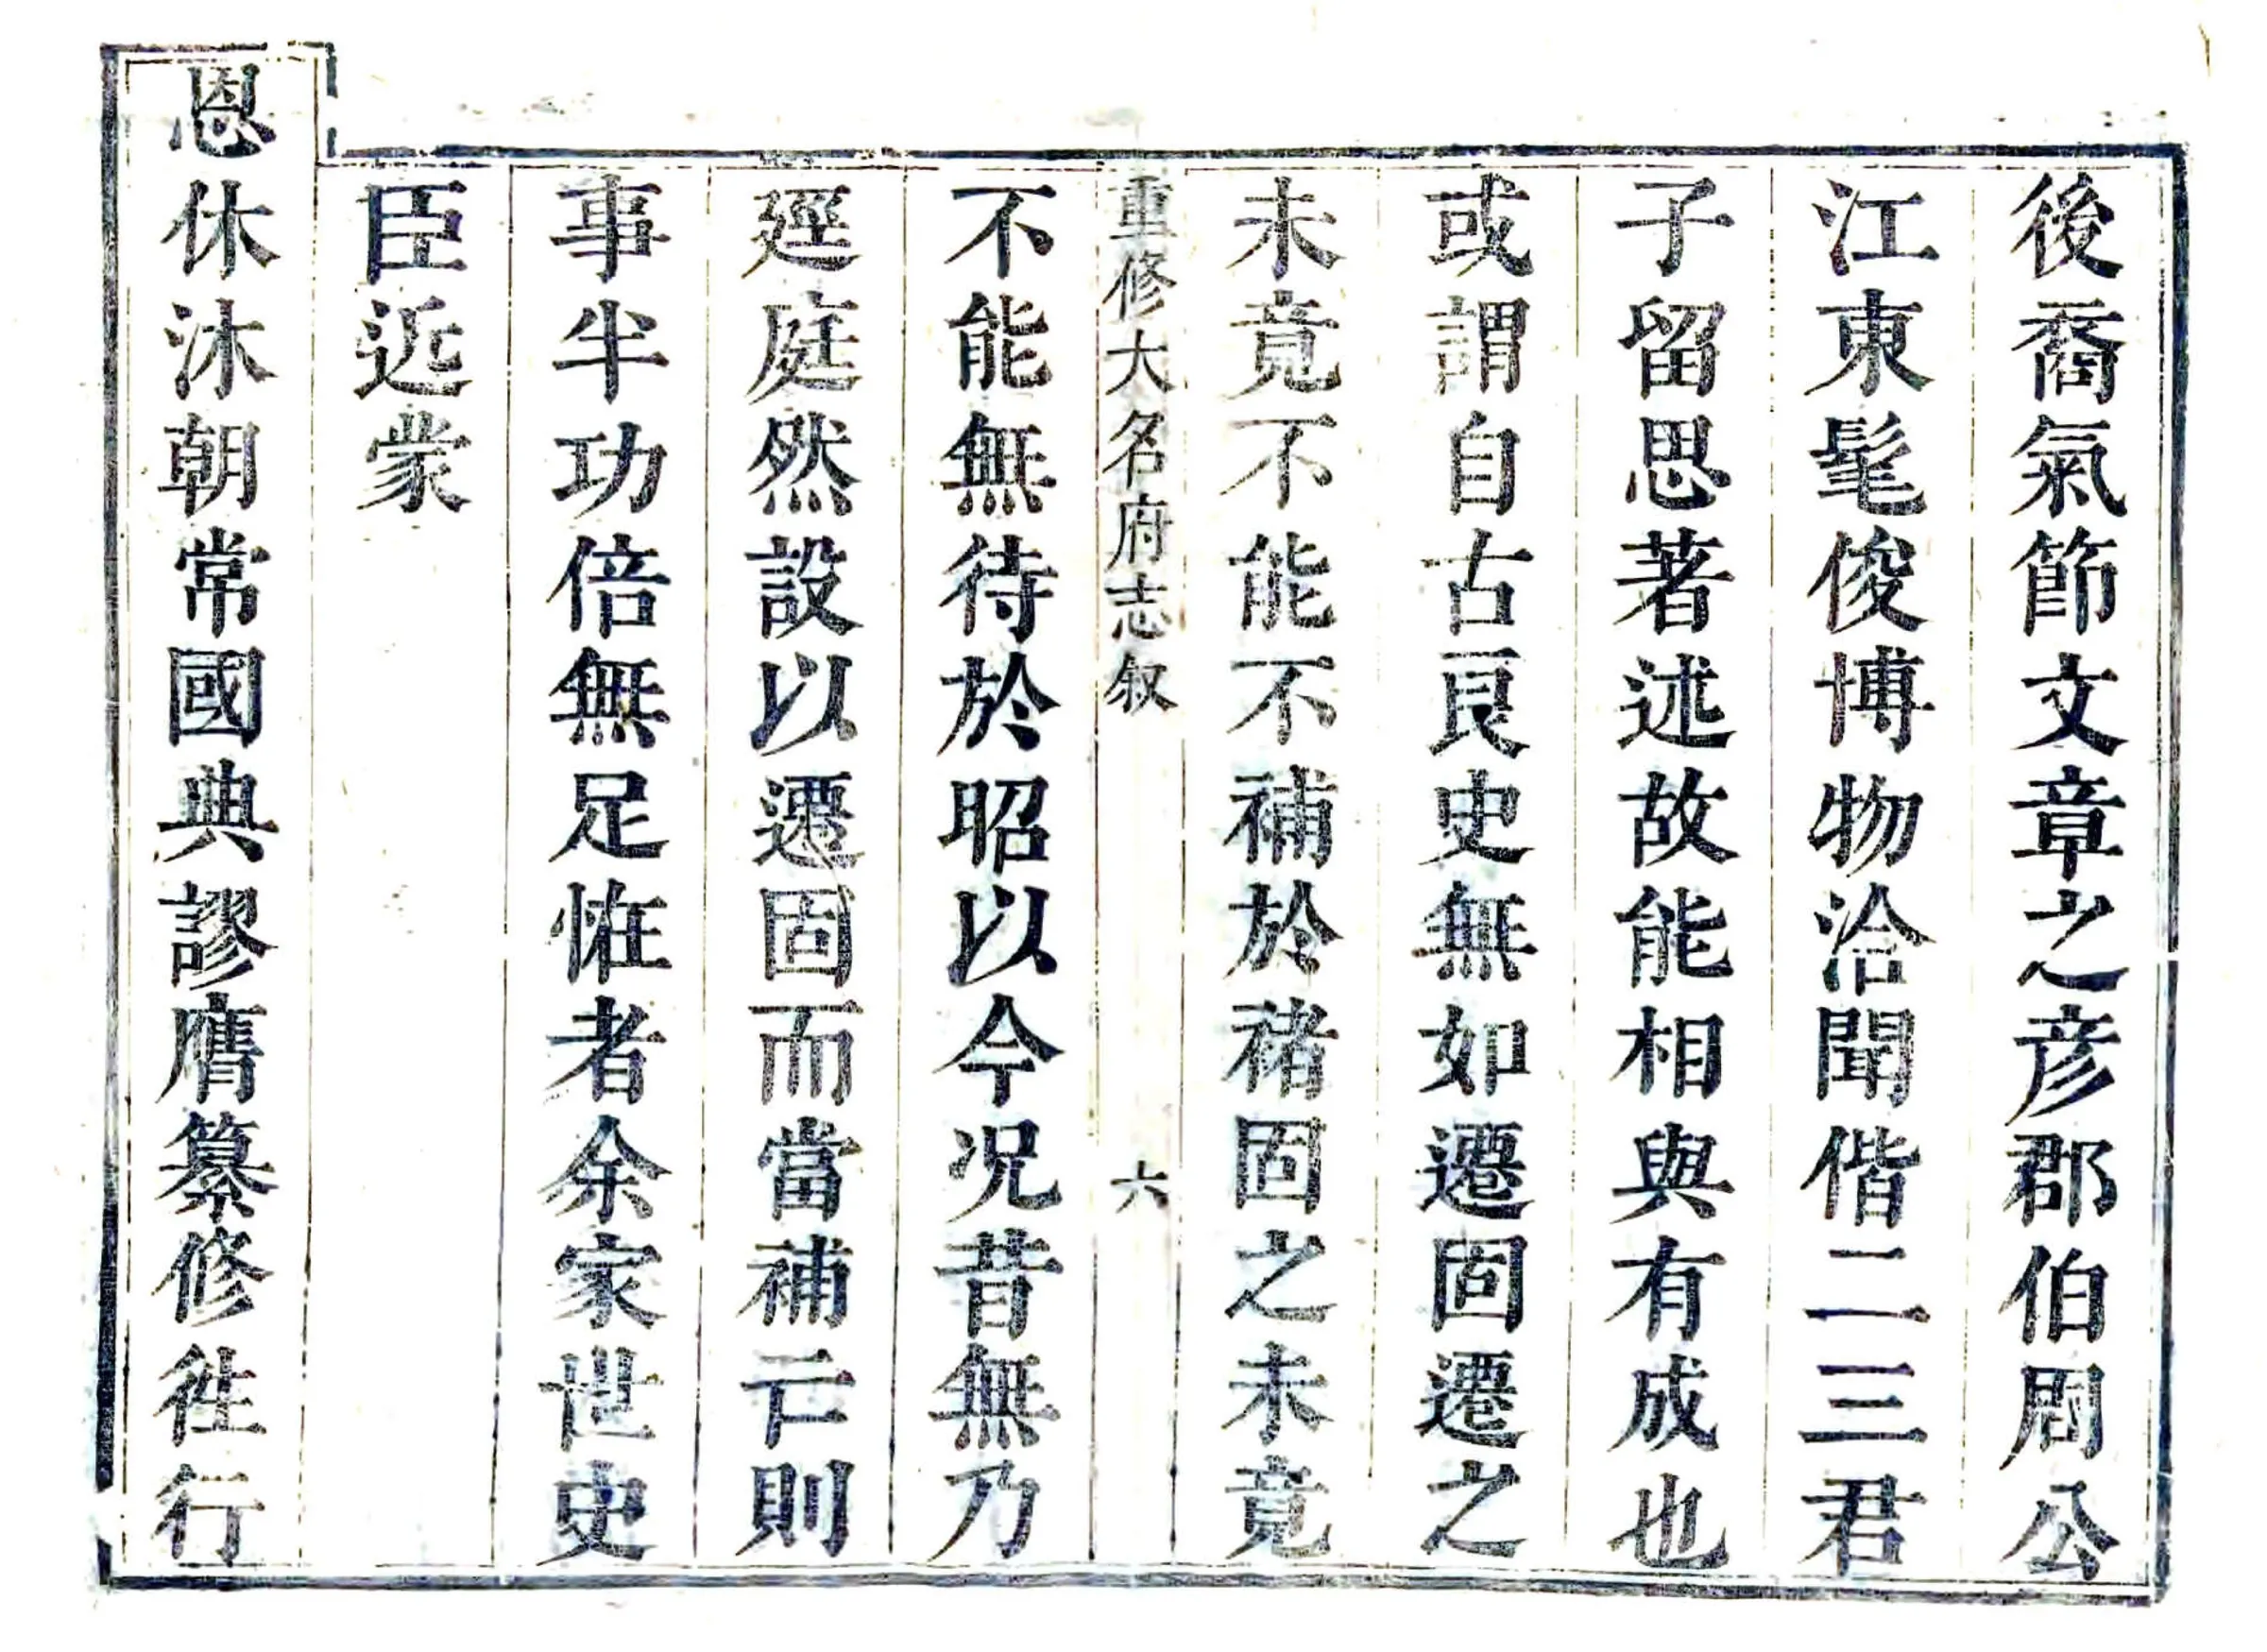 後裔氣節文章之彦郡伯周公
江東髦俊博物洽聞偕二三君
子留思著述故能相與有成也
或謂自古良史無如遷固遷之
未竟不能不補於禇固之未竟
重修大名府志叙 六
不能無待於昭以今况昔無乃
逕庭然設以遷固而當補亡則
事半功倍無足恠者余家世史
臣近蒙
恩休沐朝常國典謬膺纂修徃行